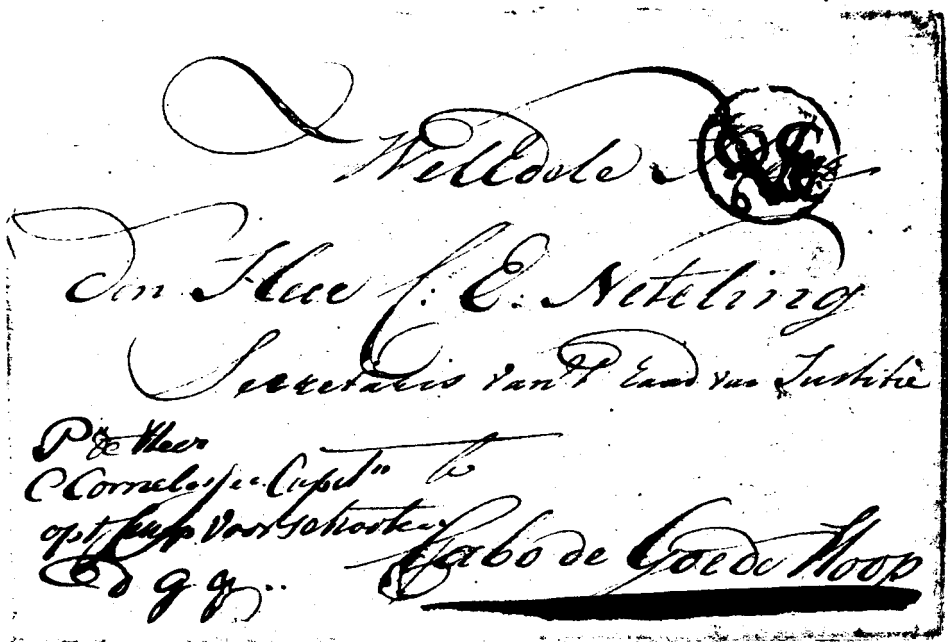 WelEdele
den Heer C: E: Neteling
Secretaris van't Raad van Justitie
Pr de Heer
C Cornelisse Captn
te
op't Schip Voorschooten
D g g..
Cabo de Goede Hoop